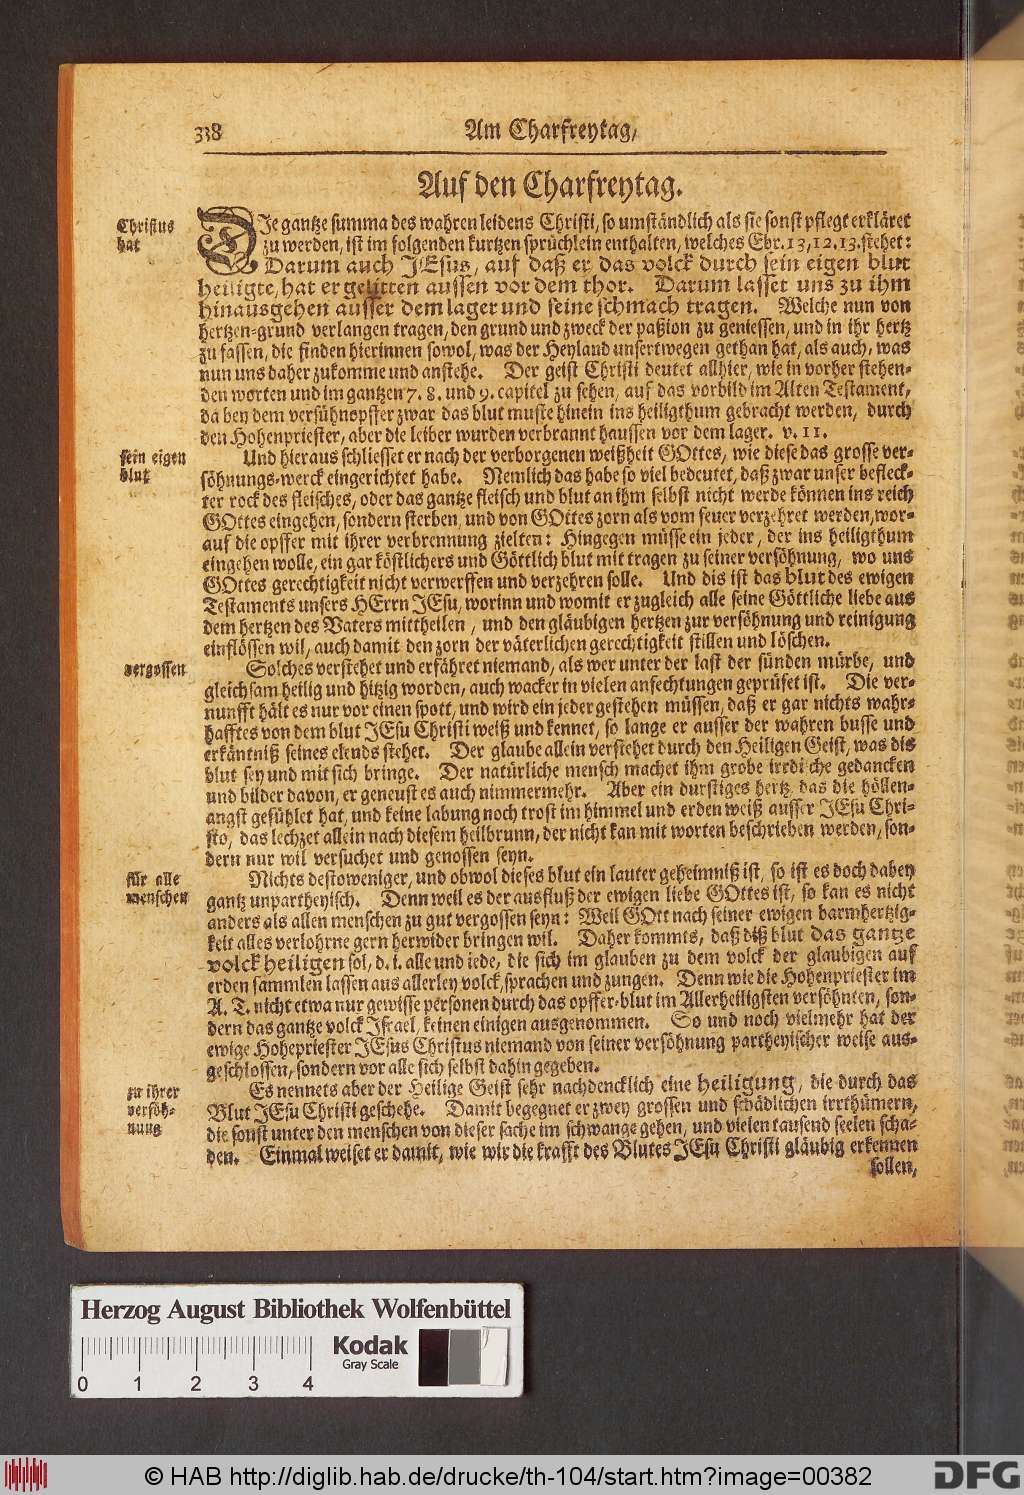 338
Am Charfreytag,
Auf den Charfreytag.
Christus
hat
DIe gantze summa des wahren leidens Christi, so umständlich als sie sonst pflegt erkläret
zu werden, ist im folgenden kurtzen sprüchlein enthalten, welches Ebr. 13, 12. 13. stehet:
Darum auch JEsus, auf daß er das volck durch sein eigen blut
heiligte, hat er gelitten aussen vor dem thor. Darum lasset uns zu ihm
hinausgehen ausser dem lager und seine schmach tragen. Welche nun von
hertzen-grund verlangen tragen, den grund und zweck der paßion zu geniessen, und in ihr hertz
zu fassen, die finden hierinnen sowol, was der Heyland unsertwegen gethan hat, als auch, was
nun uns daher zukomme und anstehe. Der geist Christi deutet allhier, wie in vorher stehen-
den worten und im gantzen 7. 8. und 9. capitel zu sehen, auf das vorbild im Alten Testament,
da bey dem versühnopffer zwar das blut muste hinein ins heiligthum gebracht werden, durch
den Hohenpriester, aber die leiber wurden verbrannt haussen vor dem lager. v. 11.
sein eigen
blut
Und hieraus schliesset er nach der verborgenen weißheit GOttes, wie diese das grosse ver-
söhnungs-werck eingerichtet habe. Nemlich das habe so viel bedeutet, daß zwar unser befleck-
ter rock des fleisches, oder das gantze fleisch und blut an ihm selbst nicht werde können ins reich
GOttes eingehen, sondern sterben, und von GOttes zorn als vom feuer verzehret werden, wor-
auf die opffer mit ihrer verbrennung zielten: Hingegen müsse ein jeder, der ins heiligthum
eingehen wolle, ein gar köstlichers und Göttlich blut mit tragen zu seiner versöhnung, wo uns
GOttes gerechtigkeit nicht verwerffen und verzehren solle. Und dis ist das blut des ewigen
Testaments unsers HErrn JEsu, worinn und womit er zugleich alle seine Göttliche liebe aus
dem hertzen des Vaters mittheilen, und den gläubigen hertzen zur versöhnung und reinigung
einflössen wil, auch damit den zorn der väterlichen gerechtigkeit stillen und löschen.
vergossen
Solches verstehet und erfähret niemand, als wer unter der last der sünden mürbe, und
gleichsam heilig und hitzig worden, auch wacker in vielen anfechtungen geprüfet ist. Die ver-
nunfft hält es nur vor einen spott, und wird ein jeder gestehen müssen, daß er gar nichts wahr-
hafftes von dem blut JEsu Christi weiß und kennet, so lange er ausser der wahren busse und
erkäntniß seines elends stehet. Der glaube allein verstehet durch den Heiligen Geist, was dis
blut sey und mit sich bringe. Der natürliche mensch machet ihm grobe irrdische gedancken
und bilder davon, er geneust es auch nimmermehr. Aber ein durstiges hertz, das die höllen-
angst gefühlet hat, und keine labung noch trost im himmel und erden weiß ausser JEsu Chri-
sto, das lechzet allein nach diesem heilbrunn, der nicht kan mit worten beschrieben werden, son-
dern nur wil versuchet und genossen seyn.
für alle
menschen
Nichts destoweniger, und obwol dieses blut ein lauter geheimniß ist, so ist es doch dabey
gantz unpartheyisch. Denn weil es der ausfluß der ewigen liebe GOttes ist, so kan es nicht
anders als allen menschen zu gut vergossen seyn: Weil GOtt nach seiner ewigen barmhertzig-
keit alles verlohrne gern herwider bringen wil. Daher kommts, daß diß blut das gantze
volck heiligen sol, d. i. alle und iede, die sich im glauben zu dem volck der glaubigen auf
erden sammlen lassen aus allerley volck, sprachen und zungen. Denn wie die Hohenpriester im
A. T. nicht etwa nur gewisse personen durch das opffer-blut im Allerheiligsten versöhnten, son-
dern das gantze volck Israel, keinen einigen ausgenommen. So und noch vielmehr hat der
ewige Hohepriester JEsus Christus niemand von seiner versöhnung partheyischer weise aus-
geschlossen, sondern vor alle sich selbst dahin gegeben.
zu ihrer
versöh-
nung
Es nennets aber der Heilige Geist sehr nachdencklich eine heiligung, die durch das
Blut JEsu Christi geschehe. Damit begegnet er zwey grossen und schädlichen irrthümern,
die sonst unter den menschen von dieser sache im schwange gehen, und vielen tausend seelen scha-
den. Einmal weiset er damit, wie wir die krafft des Blutes JEsu Christi gläubig erkennen
sollen,
Herzog August Bibliothek Wolfenbüttel
Kodak
Gray Scale
0 1 2 3 4
© HAB http://diglib.hab.de/drucke/th-104/start.htm?image=00382
DFG